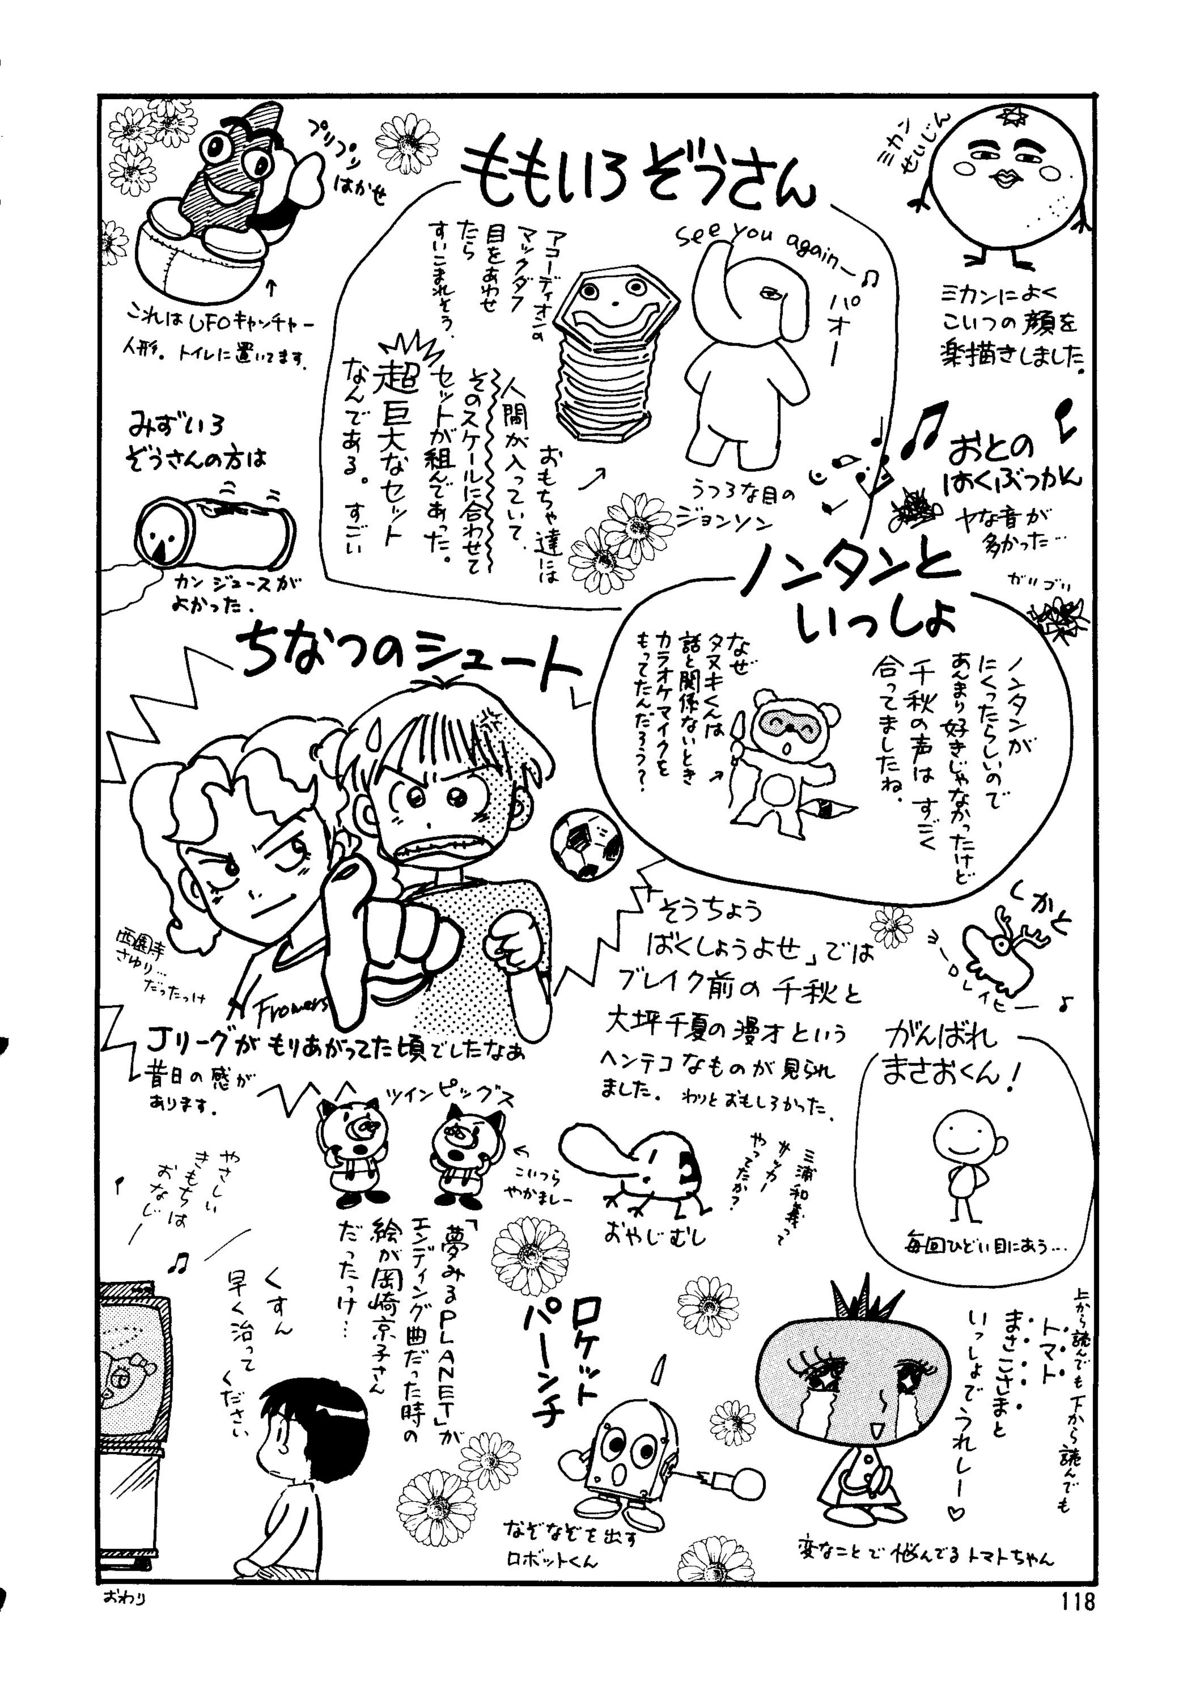 ミカン
せいじん
ミカンによく
こいつの顔を
楽描きしました。
ももいろぞうさん
See you again―♪
パオー
アコーディオンの
マックダフ
目をあわせ
たら
すいこまれそう。
うつろな目の
ジョンソン
おもちゃ達には
人間が入っていて、
そのスケールに合わせて
セットが組んであった。
超巨大なセット
なんである。すごい
プリプリ
はかせ
これはUFOキャッチャー
人形。トイレに置いてます。
みずいろ
ぞうさんの方は
カンジュースが
よかった.
おとの
はくぶつかん
ヤな音が
多かった…
ガリゴリ
ノンタンと
いっしょ
ノンタンが
にくったらしいので
あんまり好きじゃなかったけど
千秋の声はすごく
合ってましたね.
なぜ
タヌキくんは
話と関係ないとき
カラオケマイクを
もってたんだろう?
ちなつのシュート
西園寺
さゆり…
だったっけ
Frowers
Jリーグがもりあがってた頃でしたなあ
昔日の感が
あります.
「そうちょう
ばくしょうよせ」では
ブレイク前の千秋と
大坪千夏の漫才という
ヘンテコなものが見られ
ました。わりとおもしろかった.
しかと
がんばれ
まさおくん!
毎回ひどい目にあう…
ツインピッグス
こいつら
やかましー
おやじむし
三浦和義って
サッカー
やってたか?
「夢みるPLANET」が
エンディング曲だった時の
絵が岡崎京子さん
だったっけ…
やさしい
きもちは
おなじー
♫
くすん
早く治って
ください
ロケット
パーンチ
なぞなぞを出す
ロボットくん
上から読んでも下から読んでも
トマト
まさこさまと
いっしょでうれしー♡
変なことで悩んでるトマトちゃん
おわり
118